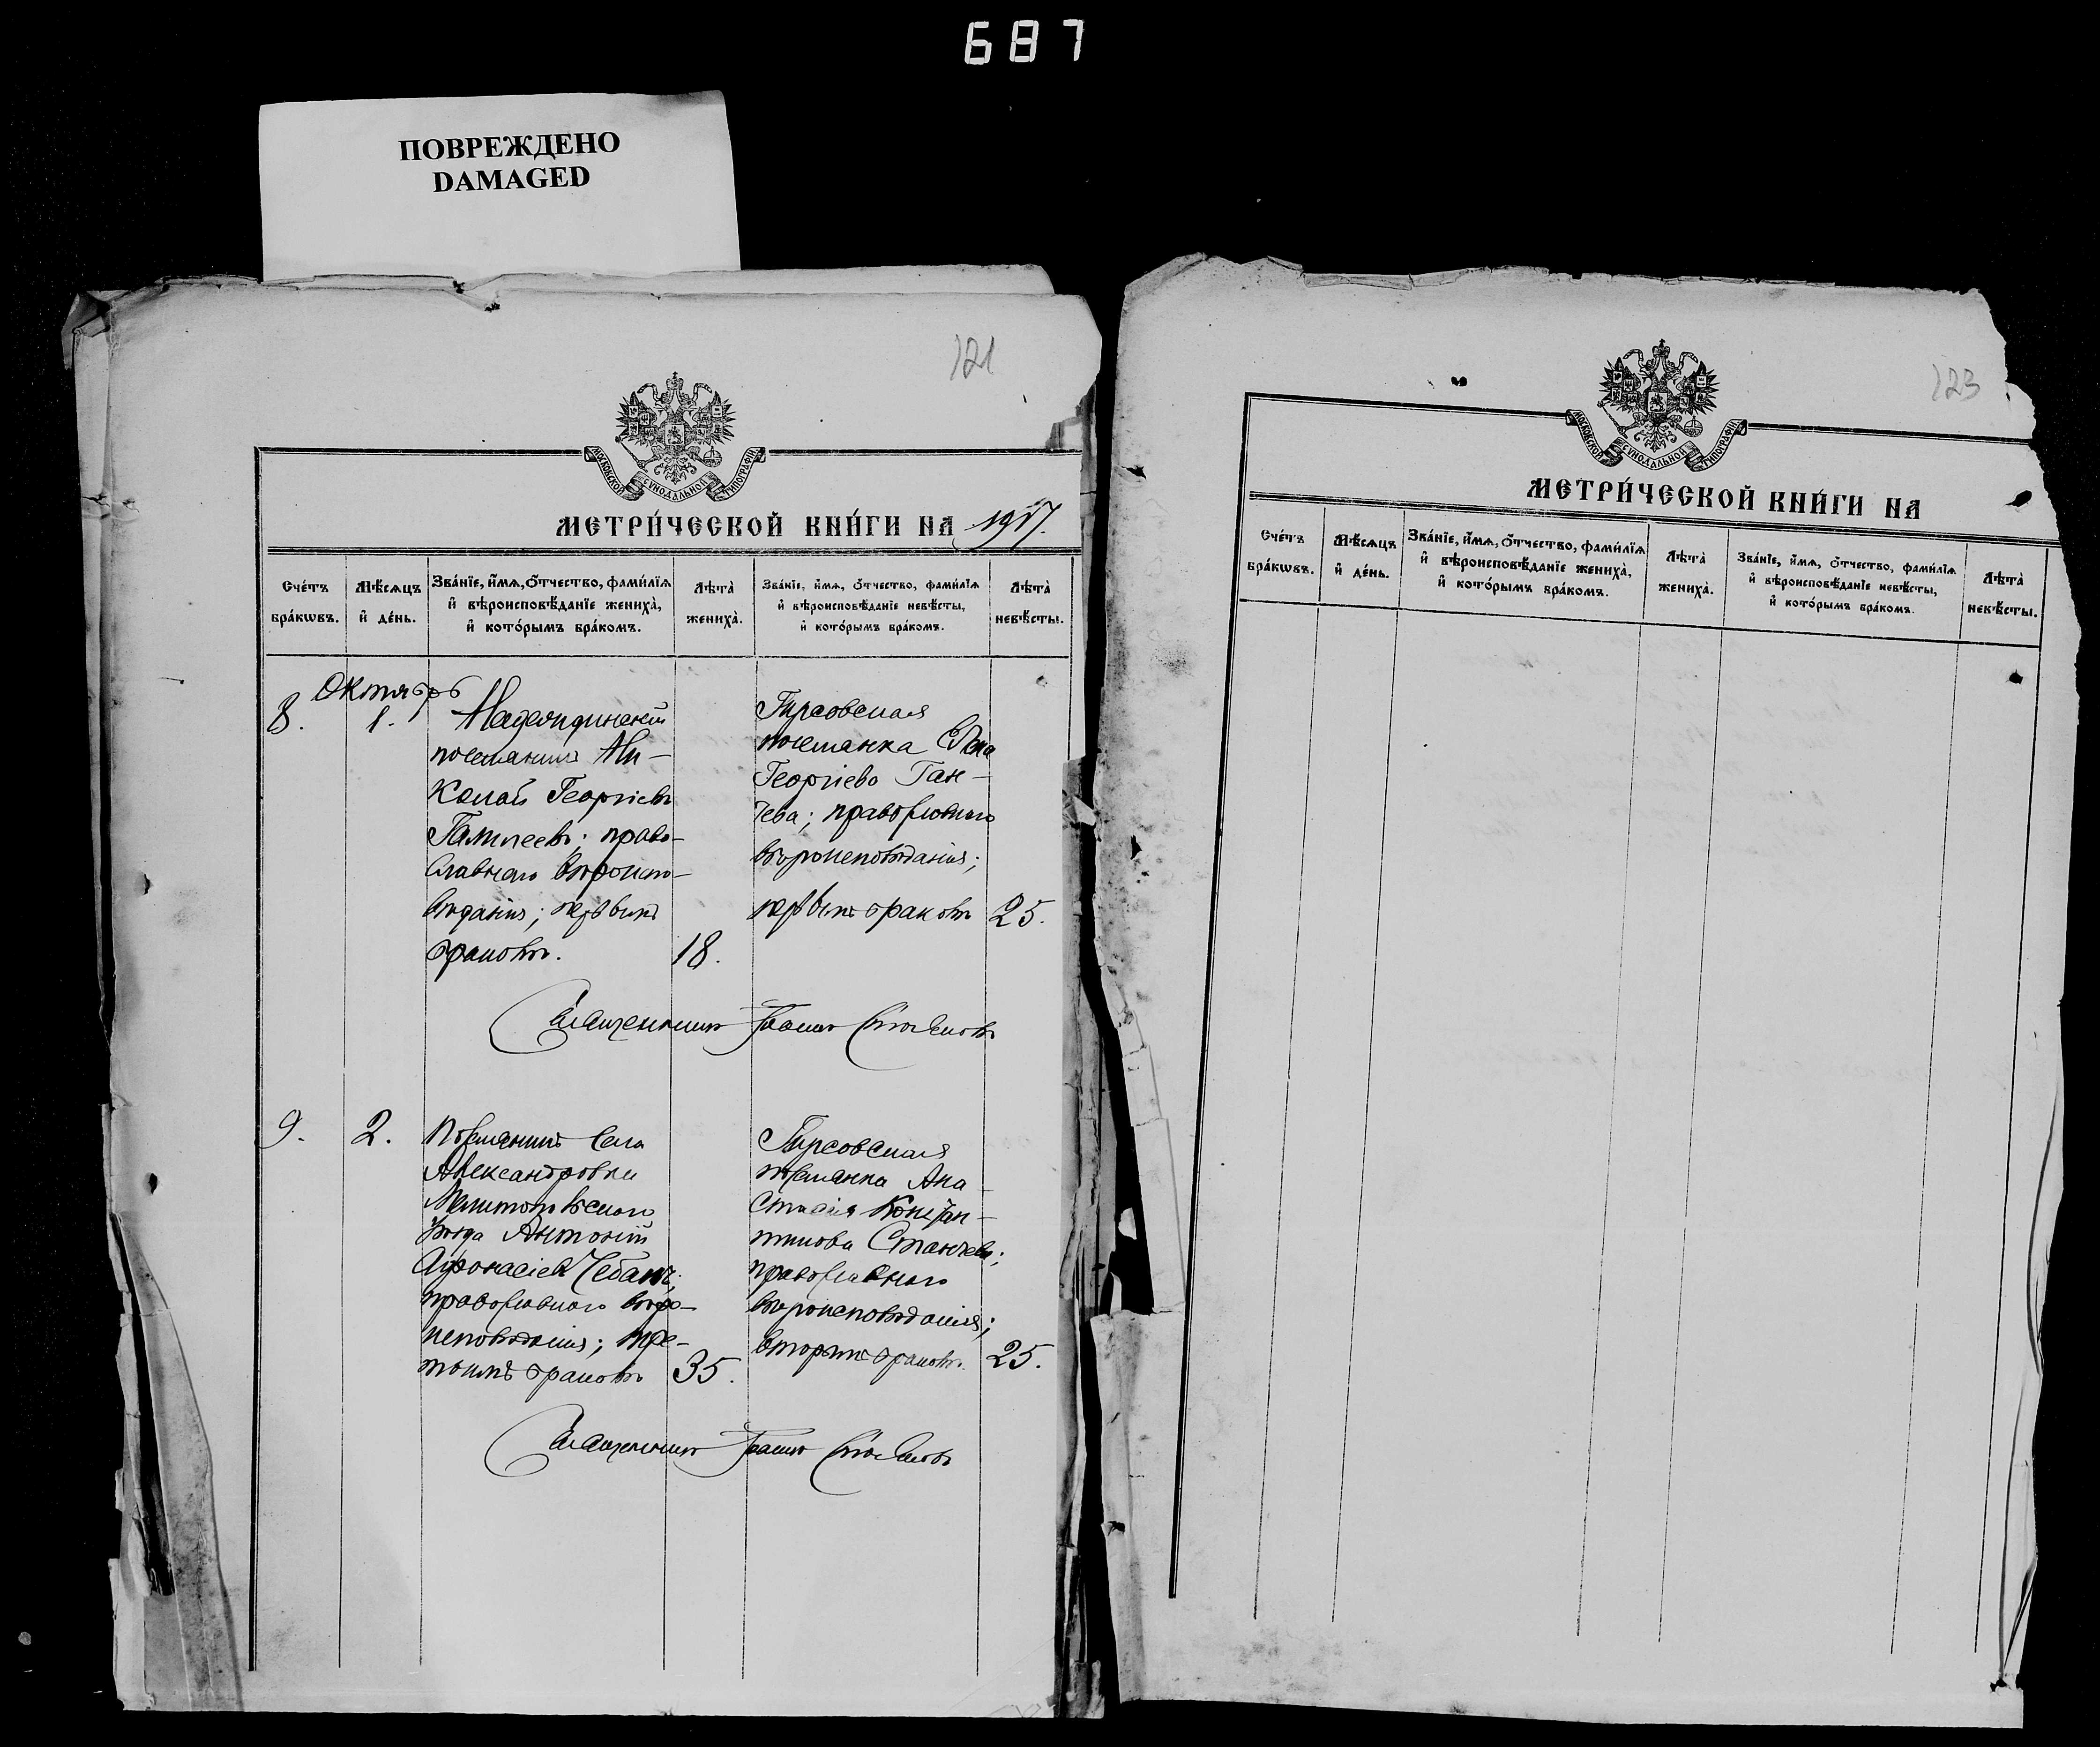 687
ПОВРЕЖДЕНО
DAMAGED
121
МОСКОВСКОЙ СѴНОДАЛЬНОЙ ТИПОГРАФІИ
МЕТРИ́ЧЕСКОЙ КНИ́ГИ НА 1917.
Сче́тъ бра́кѡвъ.
Мѣ́сѧцъ и҆ де́нь.
Зва́нїе, и҆́мѧ, ѻ҆́тчество, фами́лїѧ
и҆ вѣроисповѣ́данїе жениха̀,
и҆ кото́рымъ бра́комъ.
Лѣта̀ жениха̀.
Зва́нїе, и҆́мѧ, ѻ҆́тчество, фами́лїѧ
и҆ вѣроисповѣ́данїе невѣ́сты,
и҆ кото́рымъ бра́комъ.
Лѣта̀ невѣ́сты.
Октябрь
8. 1.
поселянинъ Ни-
колай Георгіевъ
право-
славнаго вѣроиспо-
вѣданія; первымъ
бракомъ. 18.
Гирсовская
поселянка Елена
Георгіева Ган-
чева; православнаго
вѣроисповѣданія;
первымъ бракомъ 25.
Священникъ Іоаннъ
9. 2.
Поселянинъ села
Александровки
Мелитопольскаго
уѣзда Антоній
Афонасіевъ Чебанъ;
православнаго вѣро-
исповѣданія; тре-
тьимъ бракомъ 35.
Гирсовская
поселянка Ана-
стасія Констан-
тинова Станчева;
православнаго
вѣроисповѣданія;
вторымъ бракомъ. 25.
Священникъ Іоаннъ
123
МОСКОВСКОЙ СѴНОДАЛЬНОЙ ТИПОГРАФІИ
МЕТРИ́ЧЕСКОЙ КНИ́ГИ НА
Сче́тъ бра́кѡвъ.
Мѣ́сѧцъ и҆ де́нь.
Зва́нїе, и҆́мѧ, ѻ҆́тчество, фами́лїѧ
и҆ вѣроисповѣ́данїе жениха̀,
и҆ кото́рымъ бра́комъ.
Лѣта̀ жениха̀.
Зва́нїе, и҆́мѧ, ѻ҆́тчество, фами́лїѧ
и҆ вѣроисповѣ́данїе невѣ́сты,
и҆ кото́рымъ бра́комъ.
Лѣта̀ невѣ́сты.